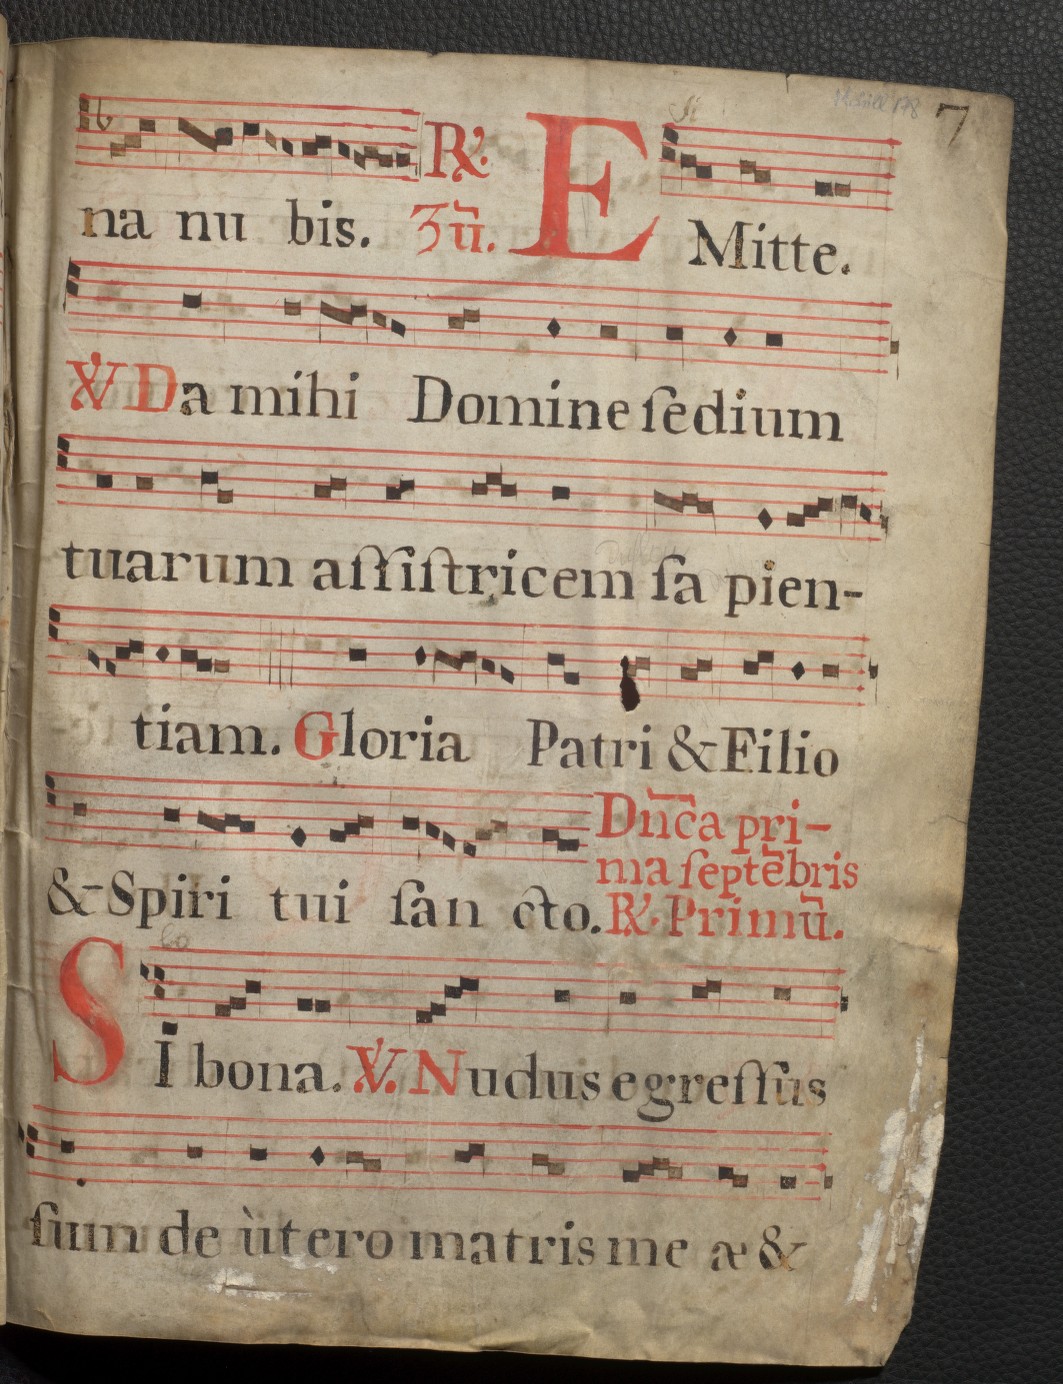 7
na nu bis. ℟. 3ũ. E Mitte.
℣ Da mihi Domine ſedium
tuarum aſſiſtricem ſa pien-
tiam. Gloria Patri & Filio
& Spiri tui ſan cto. Dñca pri-
ma ſeptẽbris
℟. Primũ.
SI bona. ℣. Nudus egreſſùs
ſum de ùtero matris me æ &